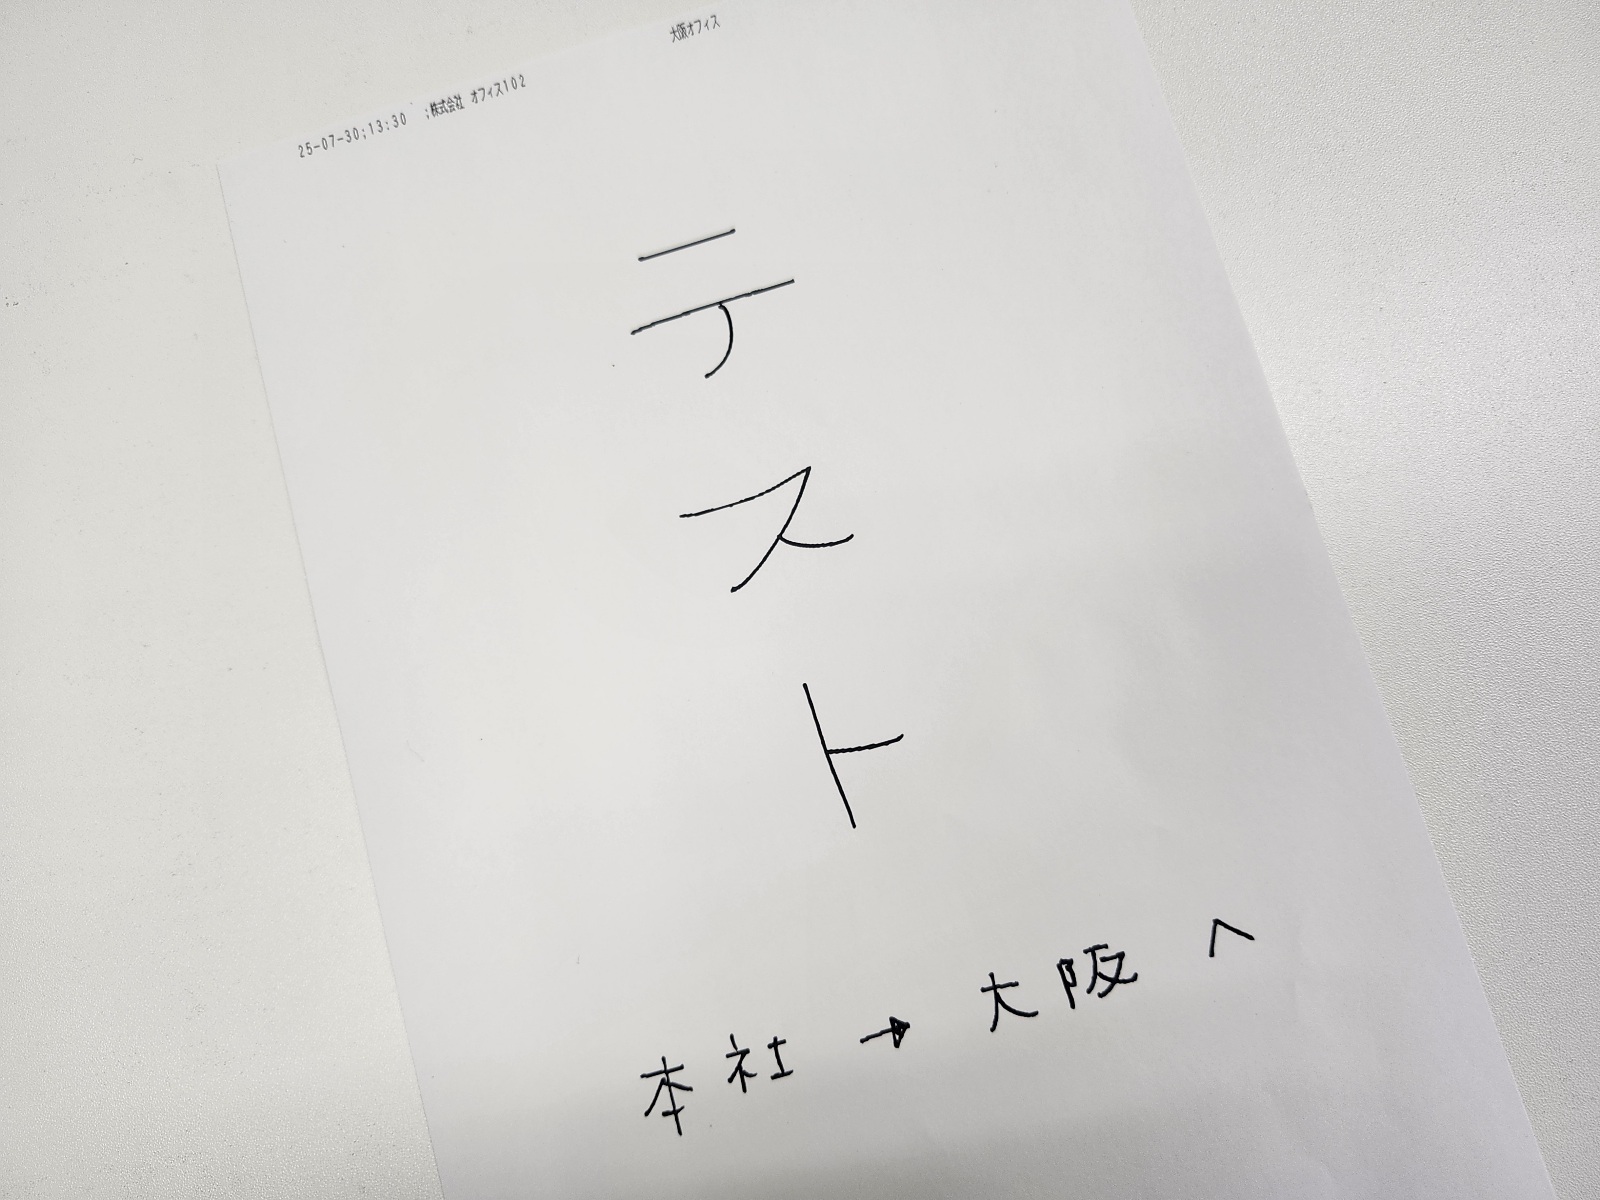 25-07-30;13:30 ;株式会社 オフィス102 大阪オフィス
テスト
本社 → 大阪 へ